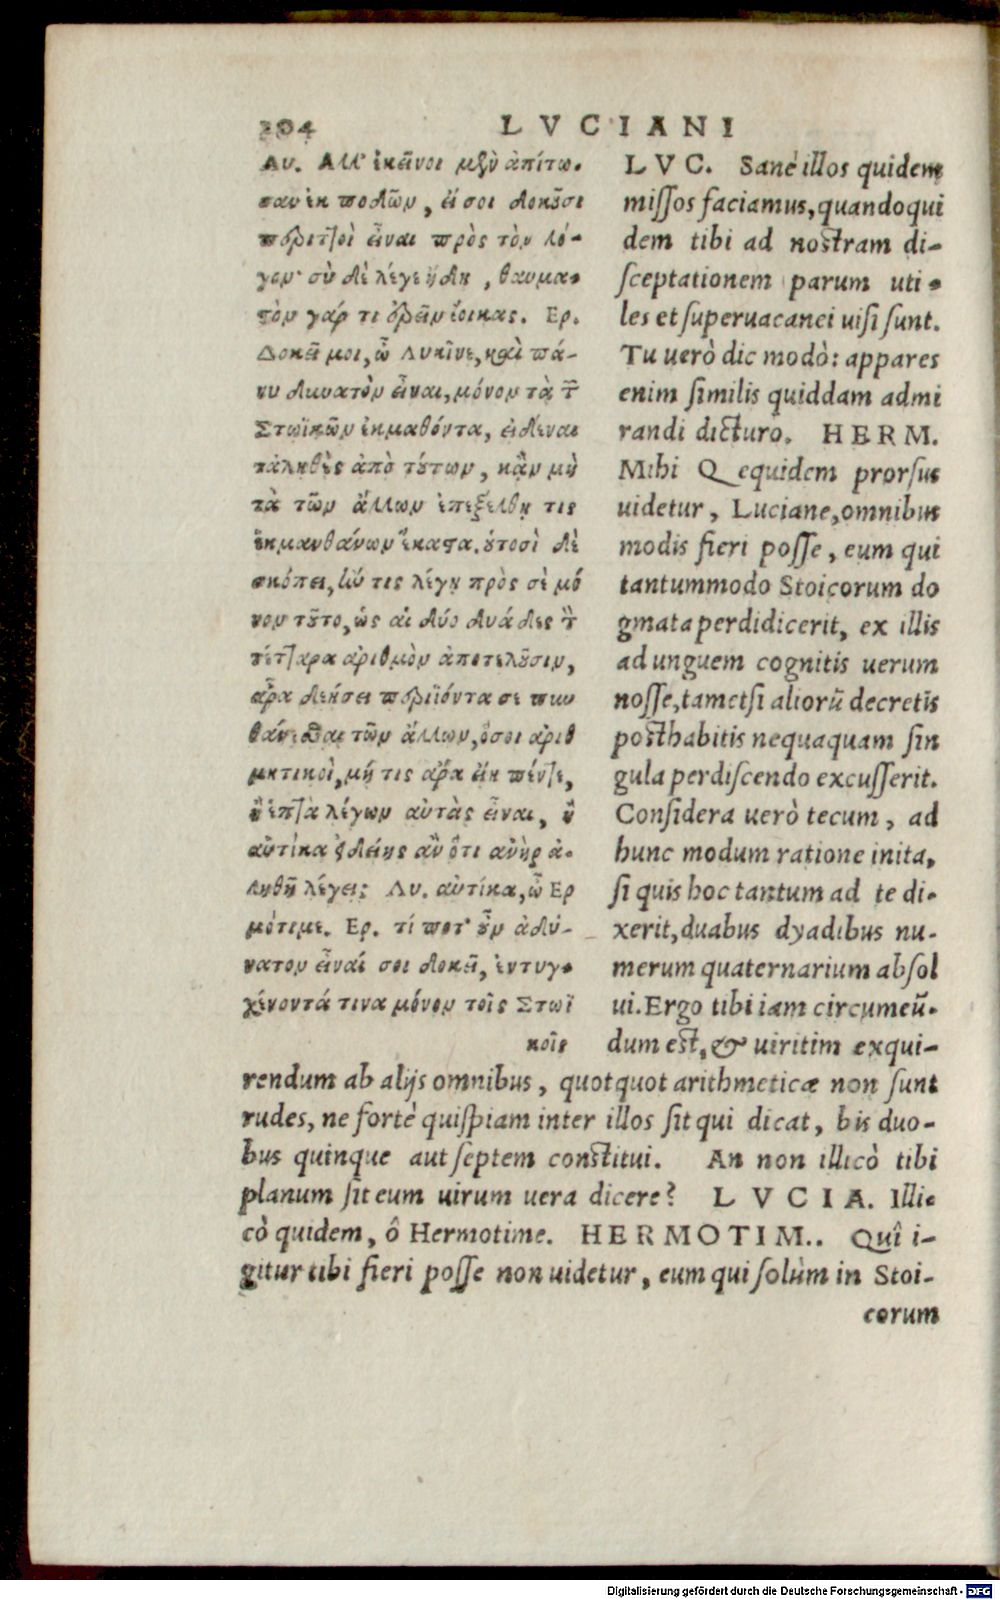 204
LVCIANI
Λυ. Ἀλλ' ἐκεῖνοι μὲν ἀπίτω-
σαν ἐκ ποδῶν, εἴ σοι δοκοῦσι
περιττοὶ εἶναι πρὸς τὸν λό-
γον· σὺ δὲ λέγε ἤδη, θαυμα-
στὸν γάρ τι ἐρεῖν ἔοικας. Ερ.
Δοκεῖ μοι, ὦ Λυκῖνε, καὶ πά-
νυ δυνατὸν εἶναι, μόνον τὰ τῶν
Στωϊκῶν ἐκμαθόντα, εἰδέναι
τἀληθὲς ἀπὸ τούτων, κἂν μὴ
τὰ τῶν ἄλλων ἐπεξέλθῃ τις
ἐκμανθάνων ἕκαστα. οὑτοσὶ δὲ
σκόπει, ἤν τις λέγῃ πρὸς σὲ μό
νον τοῦτο, ὡς αἱ δύο δυάδες τὸν
τέτταρα ἀριθμὸν ἀποτελοῦσιν,
ἆρα δεήσει περιϊόντα σε πυν
θάνεσθαι τῶν ἄλλων, ὅσοι ἀριθ
μητικοὶ, μή τις ἄρα εἴη πέντε,
ἢ ἑπτὰ λέγων αὐτὰς εἶναι, ἢ
αὐτίκα εἰδείης ἂν ὅτι ἀνὴρ ἀ-
ληθῆ λέγει; Λυ. αὐτίκα, ὦ Ερ
μότιμε. Ερ. τί ποτ' οὖν ἀδύ-
νατον εἶναί σοι δοκεῖ, ἐντυγ-
χάνοντά τινα μόνον τοῖς Στωϊ
κοῖς
LVC. Sanè illos quidem
missos faciamus, quandoqui
dem tibi ad nostram di-
sceptationem parum uti-
les et superuacanei uisi sunt.
Tu uerò dic modò: appares
enim similis quiddam admi
randi dicturo. HERM.
Mihi Q equidem prorsus
uidetur, Luciane, omnibus
modis fieri posse, eum qui
tantummodo Stoicorum do
gmata perdidicerit, ex illis
ad unguem cognitis uerum
nosse, tametsi aliorũ decretis
posthabitis nequaquam sin
gula perdiscendo excusserit.
Considera uerò tecum, ad
hunc modum ratione inita,
si quis hoc tantum ad te di-
xerit, duabus dyadibus nu-
merum quaternarium absol
ui. Ergo tibi iam circumeũ-
dum est, & uiritim exqui-
rendum ab alijs omnibus, quotquot arithmeticæ non sunt
rudes, ne fortè quispiam inter illos sit qui dicat, bis duo-
bus quinque aut septem constitui. An non illicò tibi
planum sit eum uirum uera dicere? LVCIA. Illi-
cò quidem, ô Hermotime. HERMOTIM.. Quî i-
gitur tibi fieri posse non uidetur, eum qui solùm in Stoi-
corum
Digitalisierung gefördert durch die Deutsche Forschungsgemeinschaft - DFG